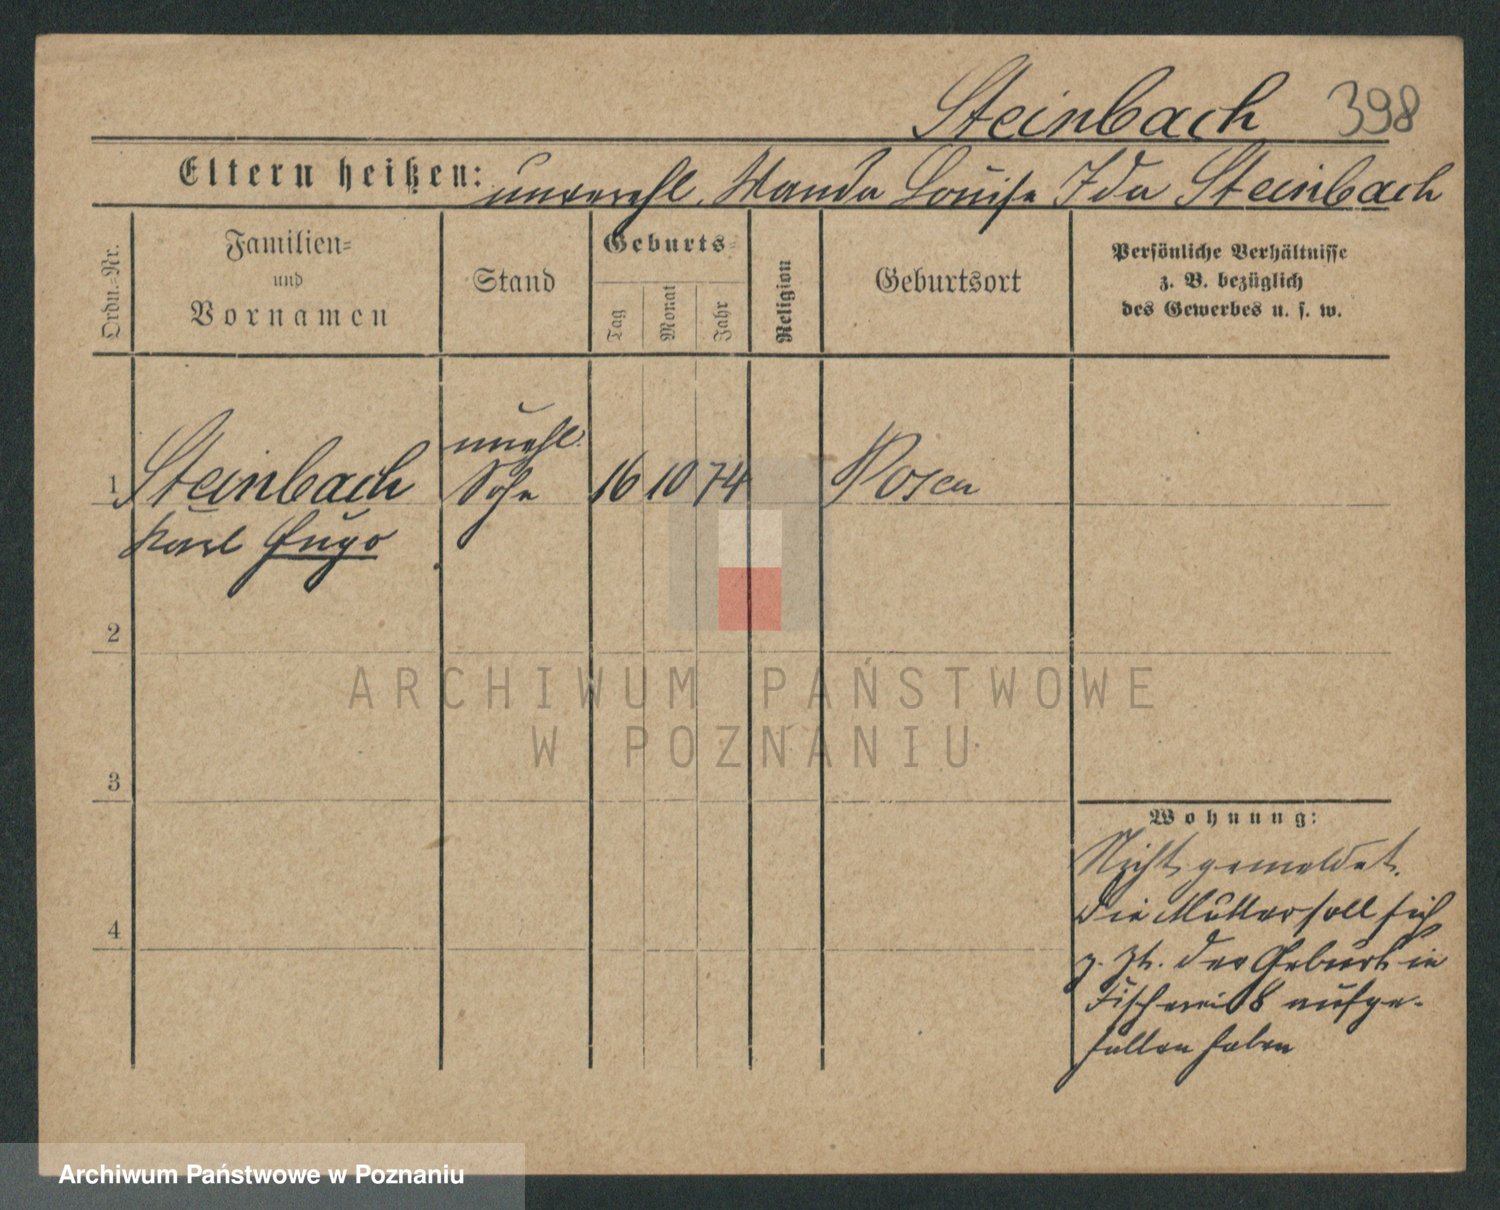 Steinbach 398
Eltern heißen: unverehl. Wanda Louise Ida Steinbach
Ordn.-Nr.
Familien-
und
Vornamen
Stand
Geburts-
Tag
Monat
Jahr
Religion
Geburtsort
Persönliche Verhältnisse
z. B. bezüglich
des Gewerbes u. s. w.
unehl.
1 Steinbach Sohn 16 10 74 Posen
Karl Hugo
2
ARCHIWUM PAŃSTWOWE
W POZNANIU
3
Wohnung:
Nicht gemeldet.
Die Mutter soll sich
z. Zt. der Geburt in
Fischerei 8 aufge-
halten haben
4
Archiwum Państwowe w Poznaniu